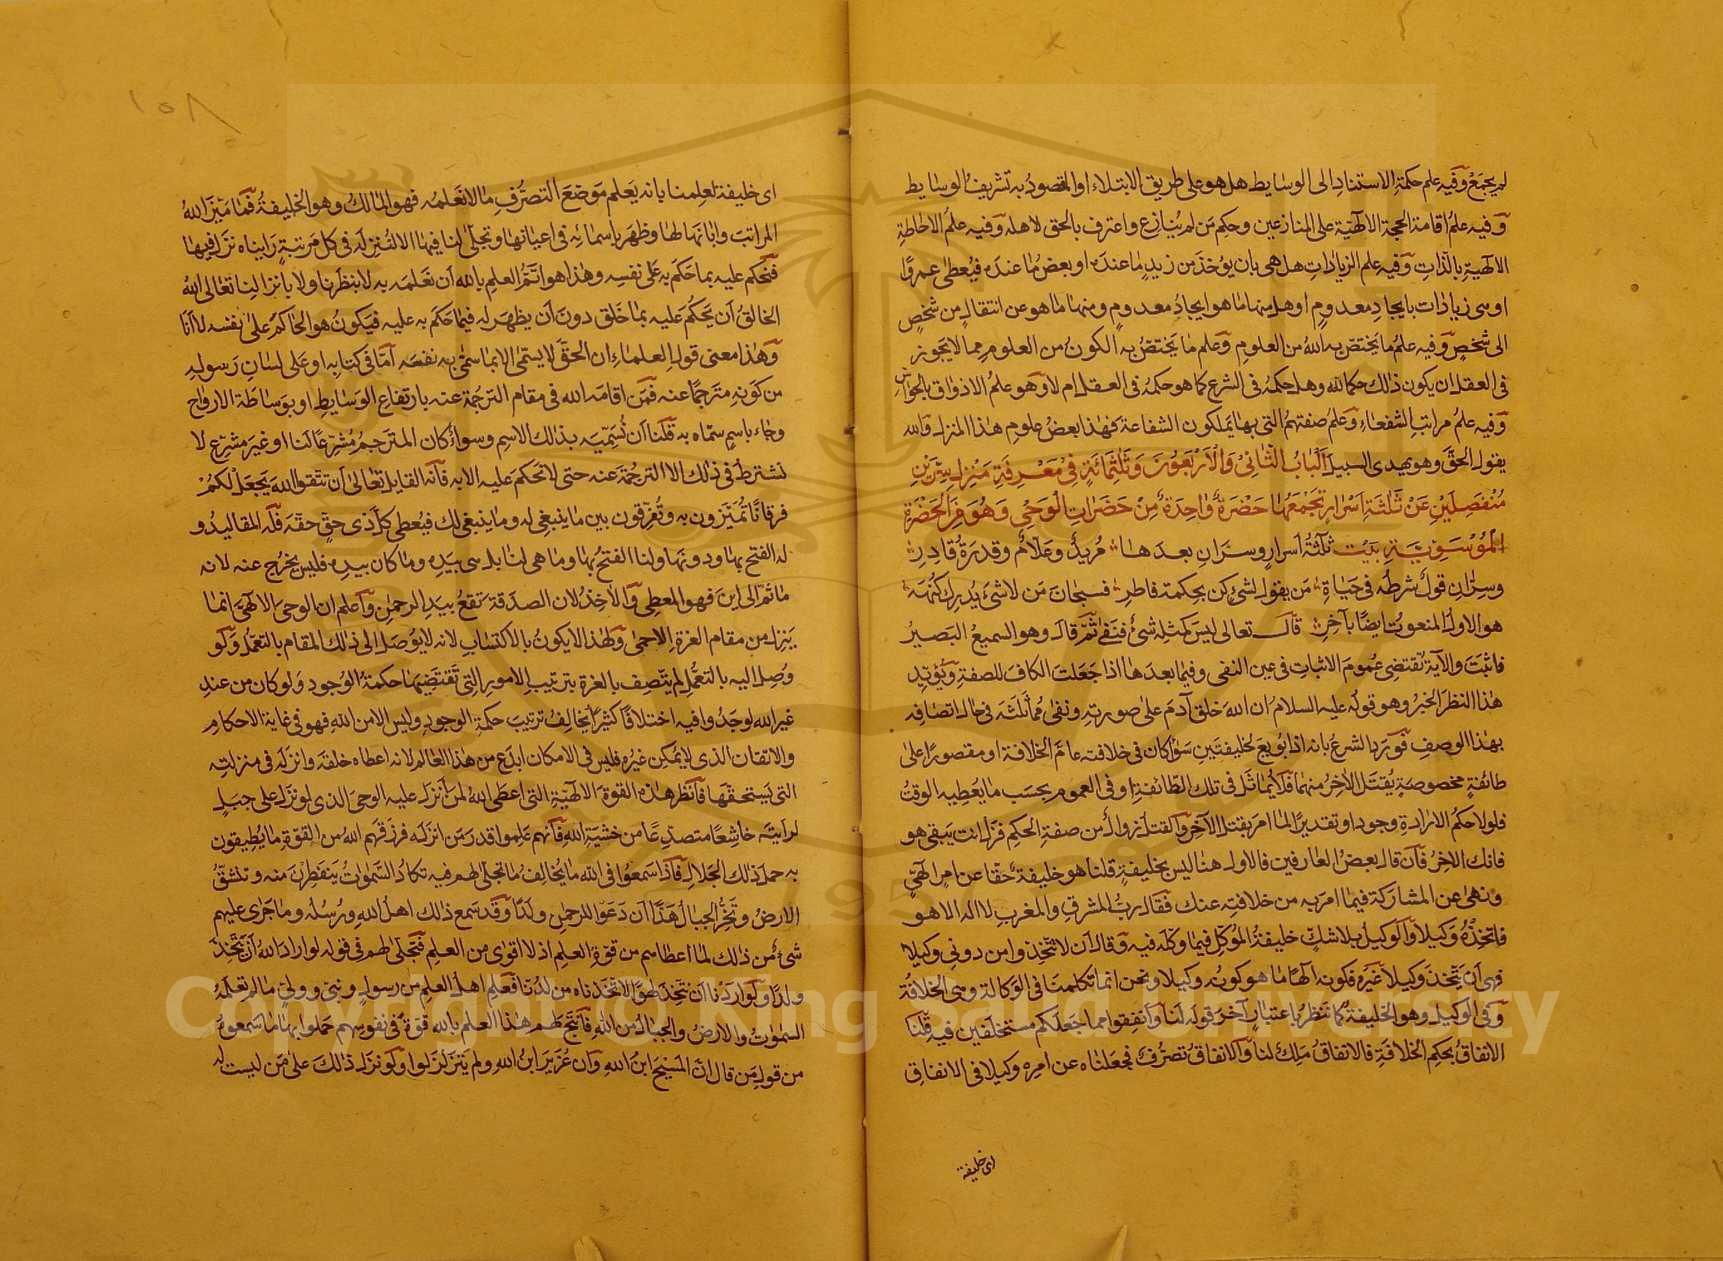 لم يجمع وفيه علم حكمة الاستناد الى الوسايط هل هو على طريق الابتلاء او المقصود به تشريف الوسايط
وفيه علم اقامة الحجة الالهية على المنازعين وحكم من لم ينازع واعترف بالحق لاهله وفيه علم الاحاطة
الالهية بالذات وفيه علم الزيادات هل هى بان يوخذ من زيد ما عنده او بعض ما عنده فيعطى عمروًا
او هى زيادات بايجاد معدوم او هل منها ما هو ايجاد معدوم ومنها ما هو عن انتقال من شخص
الى شخص وفيه علم ما يختص به الله من العلوم وعلم ما يختص به الكون من العلوم مما لا يجوز
فى العقل ان يكون ذلك حكما لله وهل حكمه فى الشرع كما هو حكمه فى العقل ام لا وهو علم الاذواق بالحواس
وفيه علم مراتب الشفعاء وعلم صفتهم التى بها يملكون الشفاعة فهذا بعض علوم هذا المنزل والله
يقول الحق وهو يهدى السبيل الباب الثانى والاربعون وثلثمائة فى معرفة منزل سرين
منفصلين عن ثلثة اسرار تجمعها حضرة واحدة من حضرات الوحى وهو من الحضرة
الموسوية بيت ثلثة اسرار وسران بعدها مريد وعلام وقدرة قادر
وسران قول شرطه فى حياة من يقول لشىء كن بحكمة فاطر فسبحان من لا شىء يدرك كنهه
هو الاول المنعوت ايضا بآخر قال تعالى ليس كمثله شىء فنفى ثم قال وهو السميع البصير
فاثبت والآية تقتضى عموم الاثبات فى عين النفى وفيما بعدها اذا جعلت الكاف للصفة ويؤيد
هذا النظر الخبر وهو قوله عليه السلام ان الله خلق آدم على صورته ونفى مماثلته فى حال اتصافه
بهذا الوصف فورد الشرع بانه اذا بويع لخليفتين سواء كان فى خلافته عام الخلافة او مقصورا على
طائفة مخصوصة يقتل الآخر منهما فلا يماثل فى تلك الطائفة او فى العموم بحسب ما يعطيه الوقت
فلولا حكم الارادة وجودا وتقديرا لما امر بقتل الآخر والقتل زوال من صفة الحكم فزل انت يبقى هو
فانك الاخر فان قال بعض العارفين فالاول هنا ليس بخليفة قلنا هو خليفة حقا عن امر الهى
ونهى عن المشاركة فيما امر به من خلافته عنك فقال رب المشرق والمغرب لا اله الا هو
فاتخذه وكيلا والوكيل بلا شك خليفة الموكل فيما وكله فيه وقال ان لا تتخذوا من دونى وكيلا
نهى ان يتخذ وكيلا غيره فكونه الها ما هو كونه وكيلا ونحن انما تكلمنا فى الوكالة وهى الخلافة
وفى الوكيل وهو الخليفة كما ننظر باعتبار آخر قوله لنا وانفقوا مما جعلكم مستخلفين فيه قلنا
الانفاق بحكم الخلافة فالانفاق ملك لنا والانفاق تصرف فجعلناه عن امره وكيلا فى الانفاق
اى خليفة
١٥٨
اى خليفة لعلمنا بانه يعلم موضع التصرف ما لا نعلمه فهو المالك وهو الخليفة فما ميز الله
المراتب وابانها لنا وظهر باسمائه فى اعيانها وتجلى لنا فيها الا لننزله فى كل مرتبة رايناه نزل فيها
فنحكم عليه بما حكم به على نفسه وهذا هو اتم العلم بالله ان نعلمه به لا بنظرنا ولا بانزالنا تعالى الله
الخالق ان يحكم عليه بما خلق دون ان يظهر له فيما حكم به عليه فيكون هو الحاكم على نفسه لا انا
وهذا معنى قول العلماء ان الحق لا يسمى الا بما سمى به نفسه اما فى كتابه او على لسان رسوله
من كونه مترجما عنه فمن اقامه الله فى مقام الترجمة عنه بارتفاع الوسايط او بوساطة الارواح
وجاء باسم سماه به قلنا ان نسميه بذلك الاسم وسواء كان المترجم مشرعا لنا او غير مشرع لا
نشترط فى ذلك الا الترجمة عنه حتى لا نحكم عليه الا به فانه القايل تعالى ان تتقوا الله يجعل لكم
فرقانا تميزون به وتفرقون بين ما ينبغى له وما ينبغى لك فيعطى كل ذى حق حقه فله المقاليد و
له الفتح بها ودونها ولنا الفتح بها وما هى لنا بل هى بيده وما كان بيده فليس يخرج عنه لانه
ما ثم الى اين فهو المعطى والاخذ لان الصدقة تقع بيد الرحمن واعلم ان الوحى الالهى انما
ينزل من مقام العزة الاحمى ولهذا لا يكون بالاكتساب لانه لا يوصل الى ذلك المقام بالتعمل ولو
وصل اليه بالتعمل لم يتصف بالعزة بترتيب الامور التى تقتضيها حكمة الوجود ولو كان من عند
غير الله لوجدوا فيه اختلافا كثيرا يخالف ترتيب حكمة الوجود وليس الا من الله فهو فى غاية الاحكام
والاتقان الذى لا يمكن غيره فليس فى الامكان ابدع من هذا العالم لانه اعطاه خلقه وانزله فى منزلته
التى يستحقها فانظر هذه القوة الالهية التى اعطى الله لمن انزل عليه الوحى الذى لو نزل على جبل
لرايته خاشعا متصدعا من خشية الله فانهم علموا قدر من انزله فرزقهم الله من القوة ما يطيقون
به حمل ذلك الجلال فاذا سمعوا فى الله ما يخالف ما تجلى لهم فيه تكاد السموات يتفطرن منه وتنشق
الارض وتخر الجبال هدا ان دعوا للرحمن ولدا وقد سمع ذلك اهل الله ورسله وما جرى عليهم
شىء من ذلك لما اعطاهم من قوة العلم اذ لا اقوى من العلم فتجلى لهم فى قوله لو اراد الله ان يتخذ
ولدا ولو اردنا ان نتخذ لهوا لاتخذناه من لدنا فعلم اهل العلم من رسول ونبى وولى ما لم تعلمه
السموات والارض والجبال من الله فانتج لهم هذا العلم بالله قوة فى نفوسهم حملوا بها ما سمعوه
من قول من قال ان المسيح ابن الله وان عزير ابن الله ولم يتزلزلوا ولو نزل ذلك على من ليست له
Copyright © King Saud University